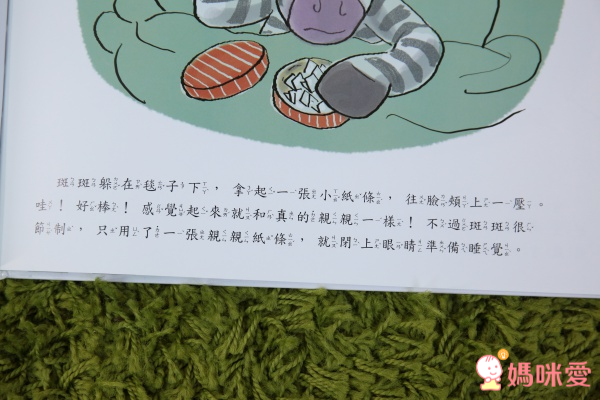 斑斑躲在毯子下，拿起一張小紙條，往臉頰上一壓。
哇！好棒！感覺起來就和真的親親一樣！不過斑斑很
節制，只用了一張親親紙條，就閉上眼睛準備睡覺。
媽咪愛